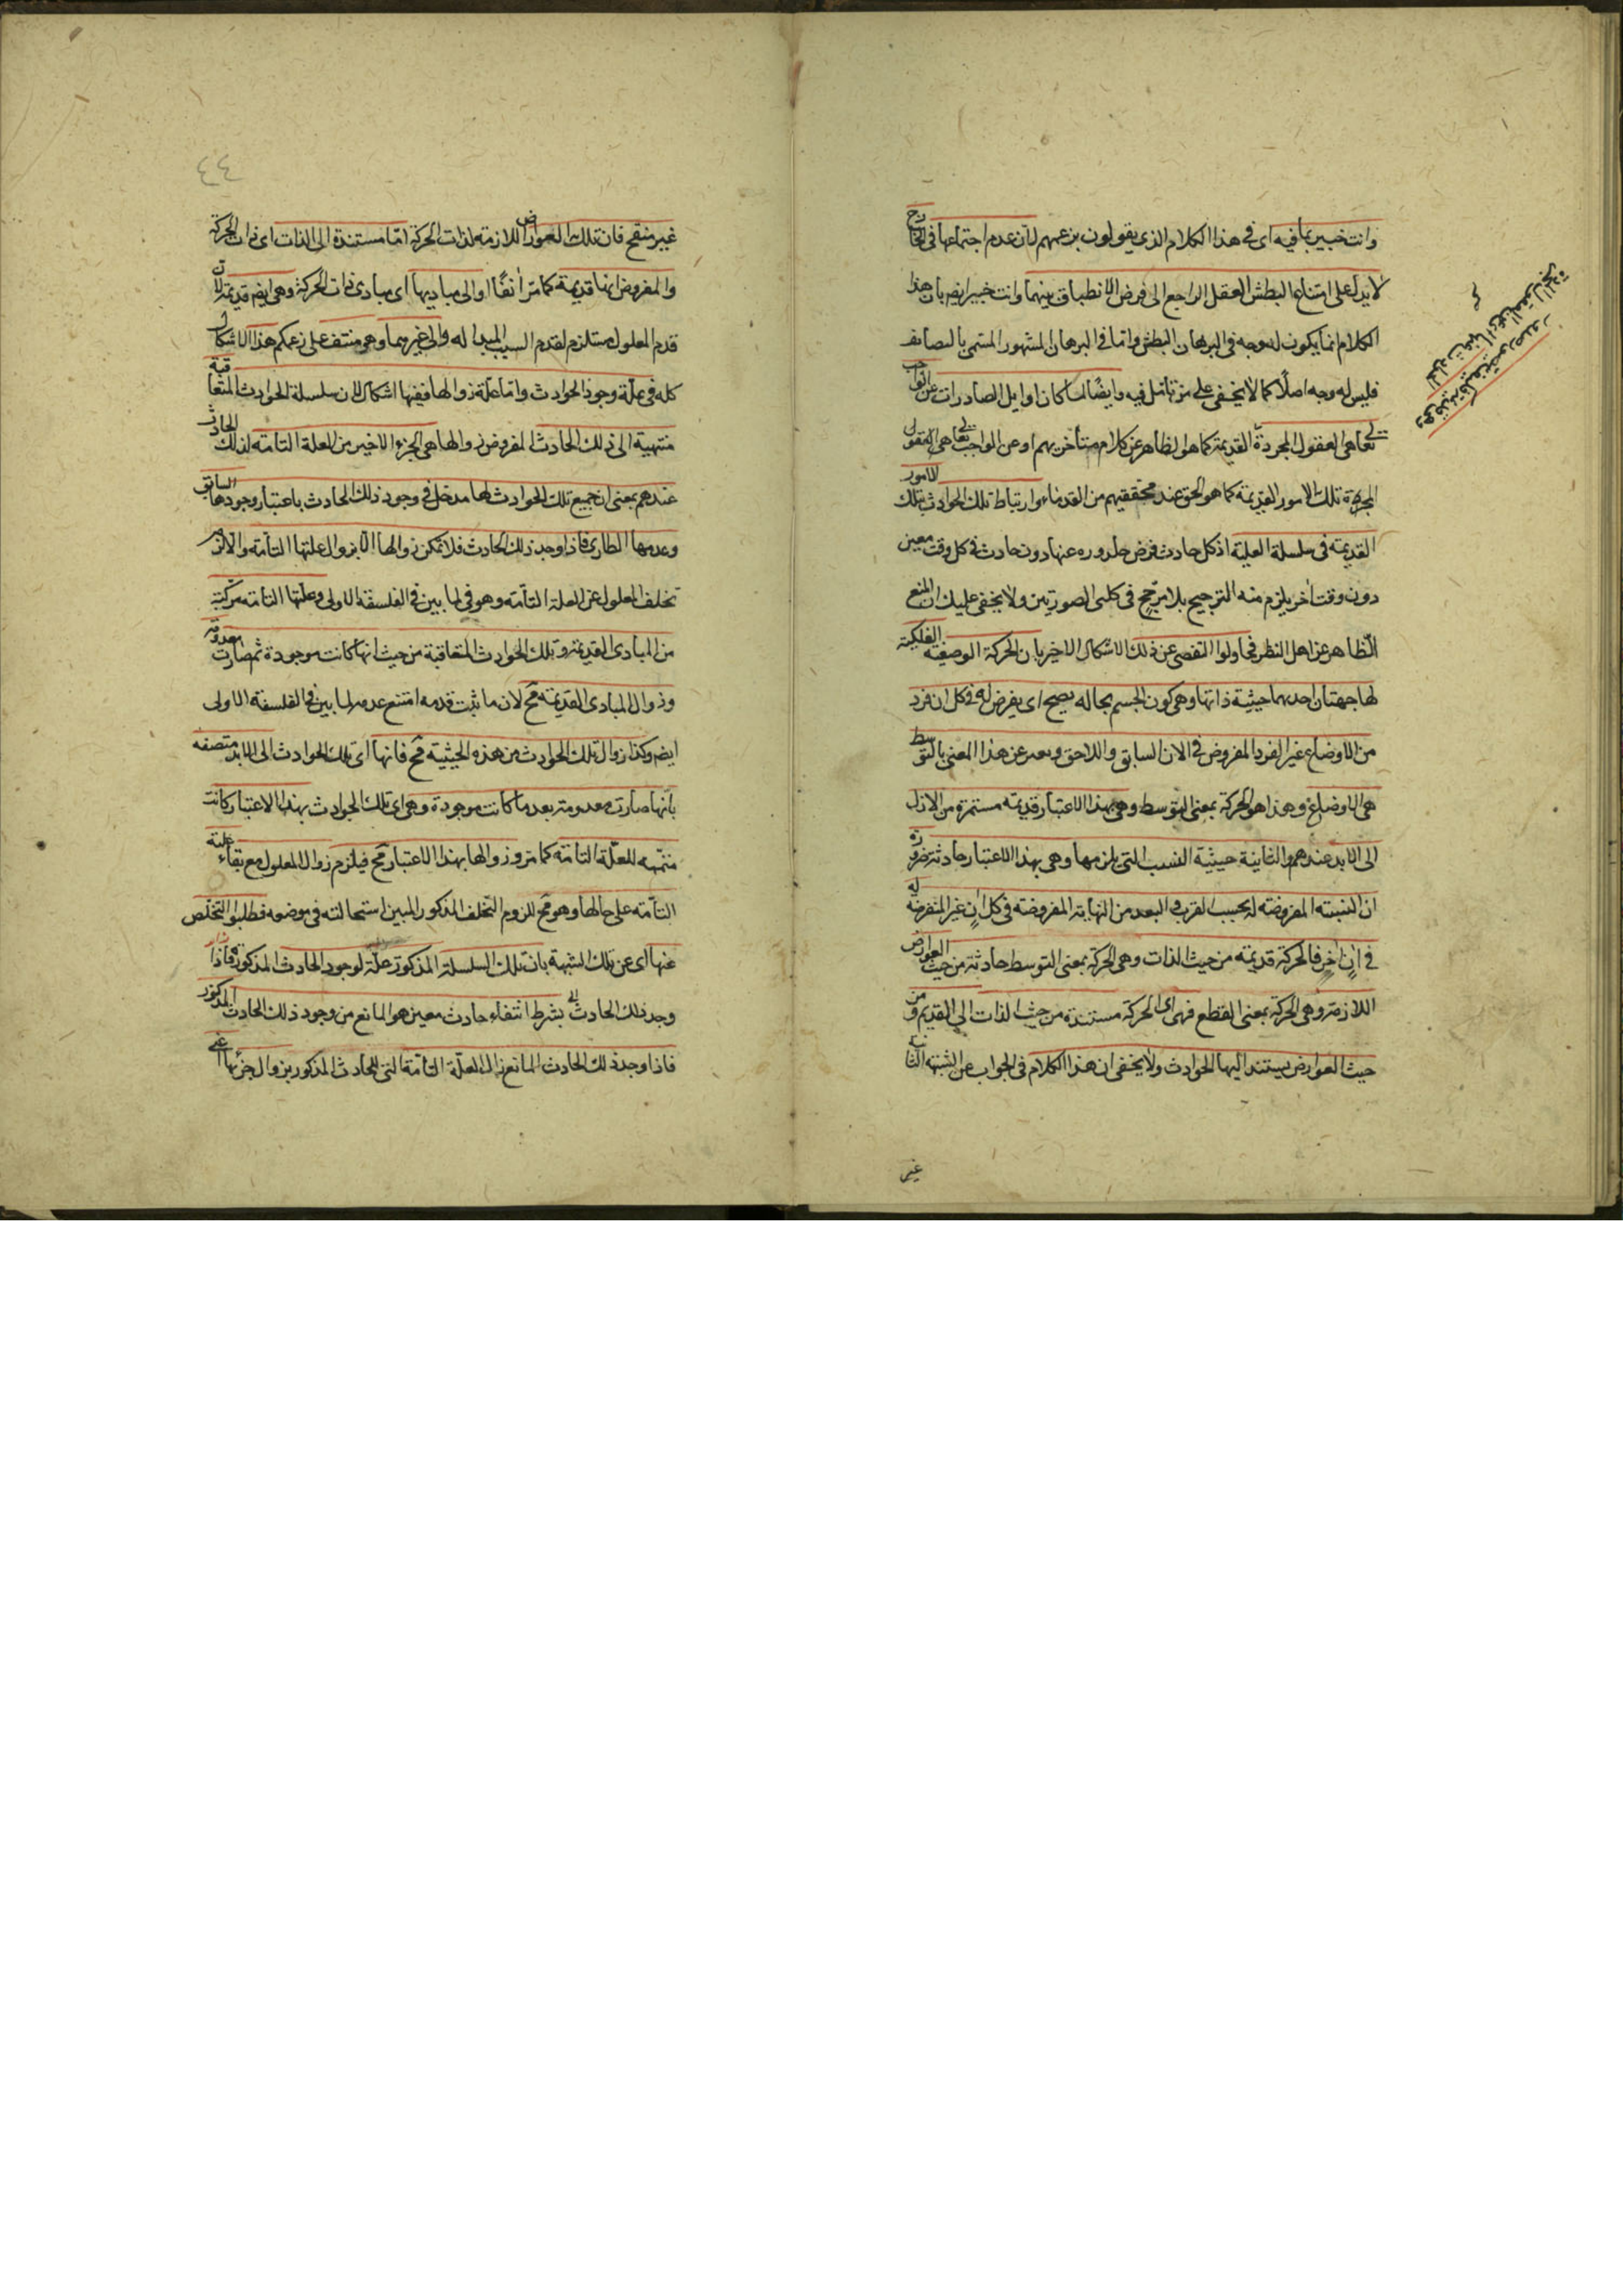 وانت خبير بما فيه اى فى هذا الكلام الذى يقولون بزعمهم لان عدم اجتماعها فى الخارج
لا يدل على امتناع البطش العقل الراجع الى فرض الانطباق بينهما وانت خبير ايضم بان هذا
الكلام انما يكون له وجه فى البرهان البطش واما فى البرهان المشهور المسمى بالتضايف
فليس له وجه اصلا كما لا يخفى على من تامل فيه وايضا لما كان اوايل الصادرات عن الواجب
تعالى هى العقول المجردة القديمة كما هو الظاهر عن كلام متأخريهم او عن الواجب تعالى هى العقول
المجردة تلك الامور القديمة كما هو الحق عند محققيهم من القدماء وارتباط تلك الحوادث بتلك الامور
القديمة فى سلسلة العلية اذ كل حادث فرض صدوره عنها دون حادث فى كل وقت معين
دون وقت آخر يلزم منه الترجيح بلا مرجح فى كلتى الصورتين ولا يخفى عليك ان المنع
الظاهر عن اهل النظر فحاولوا التفصى عن ذلك الاشكال الاخير بان الحركة الوضعية الفلكية
لها جهتان احديهما حيثية ذاتها وهى كون الجسم بحاله يصح اى يفرض له فى كل ان فرد
من الاوضاع غير الفرد المفروض فى الان السابق واللاحق ويعبر عن هذا المعنى بالتوسط
هى الاوضاع وهذا هو الحركة بمعنى التوسط وهى بهذا الاعتبار قديمة مستمرة من الازل
الى الابد عندهم والثانية حيثية النسب التى يلزمها وهى بهذا الاعتبار حادثة ضرورة
ان النسبة المفروضة له بحسب القرب والبعد من النهاية المفروضة فى كل ان غير المفروضة له
فى ان اخر فالحركة قديمة من حيث الذات وهى الحركة بمعنى التوسط حادثة من حيث العوارض
اللازمة وهى الحركة بمعنى القطع فهى اى الحركة مستندة من حيث الذات الى القديم ومن
حيث العوارض يستند اليها الحوادث ولا يخفى ان هذا الكلام فى الجواب عن الشبهة الثانية
غير
٤٤
غير منقح فان تلك العوارض اللازمة لذات الحركة اما مستندة الى الذات اى ذات الحركة
والمفروض انها قديمة كما مر آنفا او الى مباديها اى مبادى ذات الحركة وهى ايضم قديمة لان
قدم المعلول مستلزم لقدم السبب الموجد له والى غيرهما وهو منتف على زعمكم هذا الاشكال
كله فى علة وجود الحوادث واما علة زوالها ففيها اشكال لان سلسلة الحوادث المتعاقبة
منتهية الى ذلك الحادث المفروض زوالها هى الجزء الاخير من العلة التامة لذلك الحادث
عندهم بمعنى ان جميع تلك الحوادث لها مدخل فى وجود ذلك الحادث باعتبار وجودها السابق
وعدمها الطارى فاذا وجد ذلك الحادث فلا يمكن زوالها الا بزوال علتها التامة والا لزم
تخلف المعلول عن العلة التامة وهو فى لما بين فى الفلسفة الاولى وعلتها التامة مركبة
من المبادى القديمة وتلك الحوادث المتعاقبة من حيث انها كانت موجودة ثم صارت معدومة
وزوال المبادى القديمة مح لان ما ثبت قدمه امتنع عدمه لما بين فى الفلسفة الاولى
ايضم وكذا زوال تلك الحوادث من هذه الحيثية مح فانها اى تلك الحوادث الى الابد متصفة
بانها صارت معدومة بعد ما كانت موجودة وهى اى تلك الحوادث بهذا الاعتبار كانت
متممه للعلة التامة كما مر وزوالها بهذا الاعتبار مح فيلزم زوال المعلول مع بقاء علته
التامة على حالها وهو مح للزوم التخلف المذكور المبين استحالته فى موضعه فطلبوا التخلص
عنها اى عن تلك الشبهة بان تلك السلسلة المذكورة علة لوجود الحادث المذكور فاذا
وجد ذلك الحادث بشرط انتفاء حادث معين هو المانع من وجود ذلك الحادث المذكور
فاذا وجد ذلك الحادث المانع زال العلة التامة التى للحادث المذكور بزوال جزئها